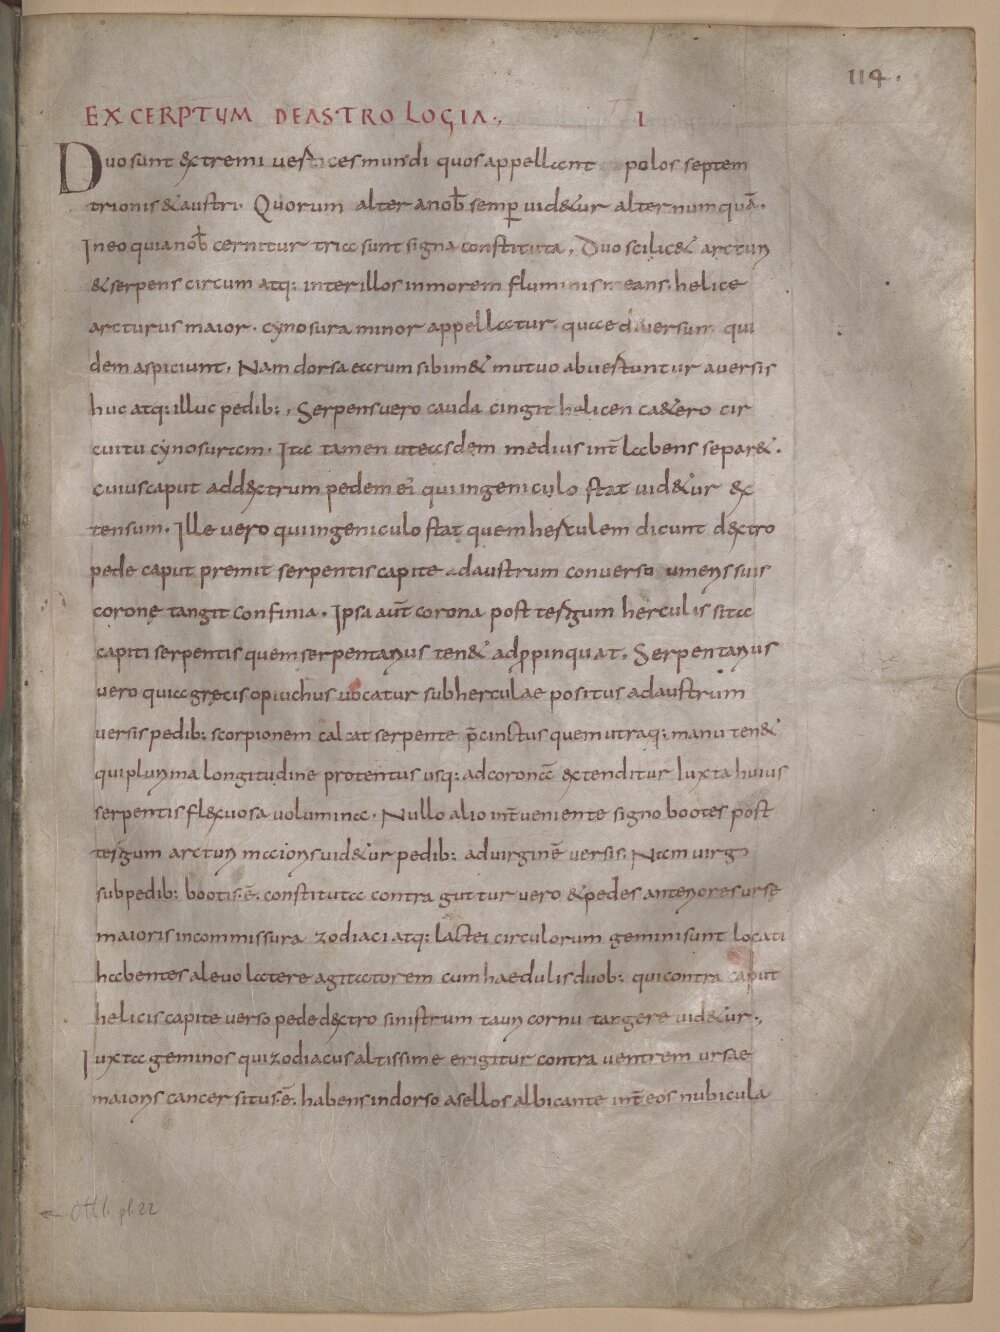 114.
EXCERPTUM DE ASTROLOGIA., I
Duo sunt extremi vertices mundi quos appellant polos septem
trionis & austri. Quorum alter a nob̄ semp̱ uid&ur alter numquā.
In eo qui a nob̄ cernitur tria sunt signa constituta, Duo scilic& arcturi
& serpens circum atq; inter illos in morem fluminis means. helice
arcturus maior. cynosura minor appellatur. quae diversum qui
dem aspiciunt, Nam dorsa earum sibim& mutuo abuertuntur aversis
huc atq; illuc pedib;, Serpens vero cauda cingit helicen ca&ero cir
cuitu cynosuram. Ita tamen ut easdem medius int̄ labens separ&.
cuius caput ad dextrum pedem ei' qui in geniculo stat uid&ur ex
tensum. Ille vero qui in geniculo stat quem herculem dicunt dextro
pede caput premit serpentis capite ad austrum converso umeris suis
coronę tangit confinia. Ipsa aut̄ corona post tergum herculis sita
capiti serpentis quem serpentarius ten& adpropinquat. Serpentarius
vero qui a gręcis opiuchus uocatur sub herculae positus ad austrum
versis pedib; scorpionem calcat serpente p̄cinctus quem utraq; manu ten&
qui plurima longitudine protentus usq; ad coronā extenditur Iuxta huius
serpentis flexuosa volumina. Nullo alio int̄veniente signo bootes post
tergum arcturi maioris uid&ur pedib; ad virginē versis. Nam virgo
sub pedib; bootis.ē. constituta contra guttur vero & pedes anteriores ursę
maioris in commissura zodiaci atq; lactei circulorum gemini sunt locati
habentes a levo latere agitatorem cum haedulis duob; qui contra caput
helicis capite verso pede dextro sinistrum tauri cornu tangere uid&ur.,
Iuxta geminos qui zodiacus altissime erigitur contra ventrem ursae
maioris cancer situs.ē. habens in dorso asellos albicante int̄ eos nubicula